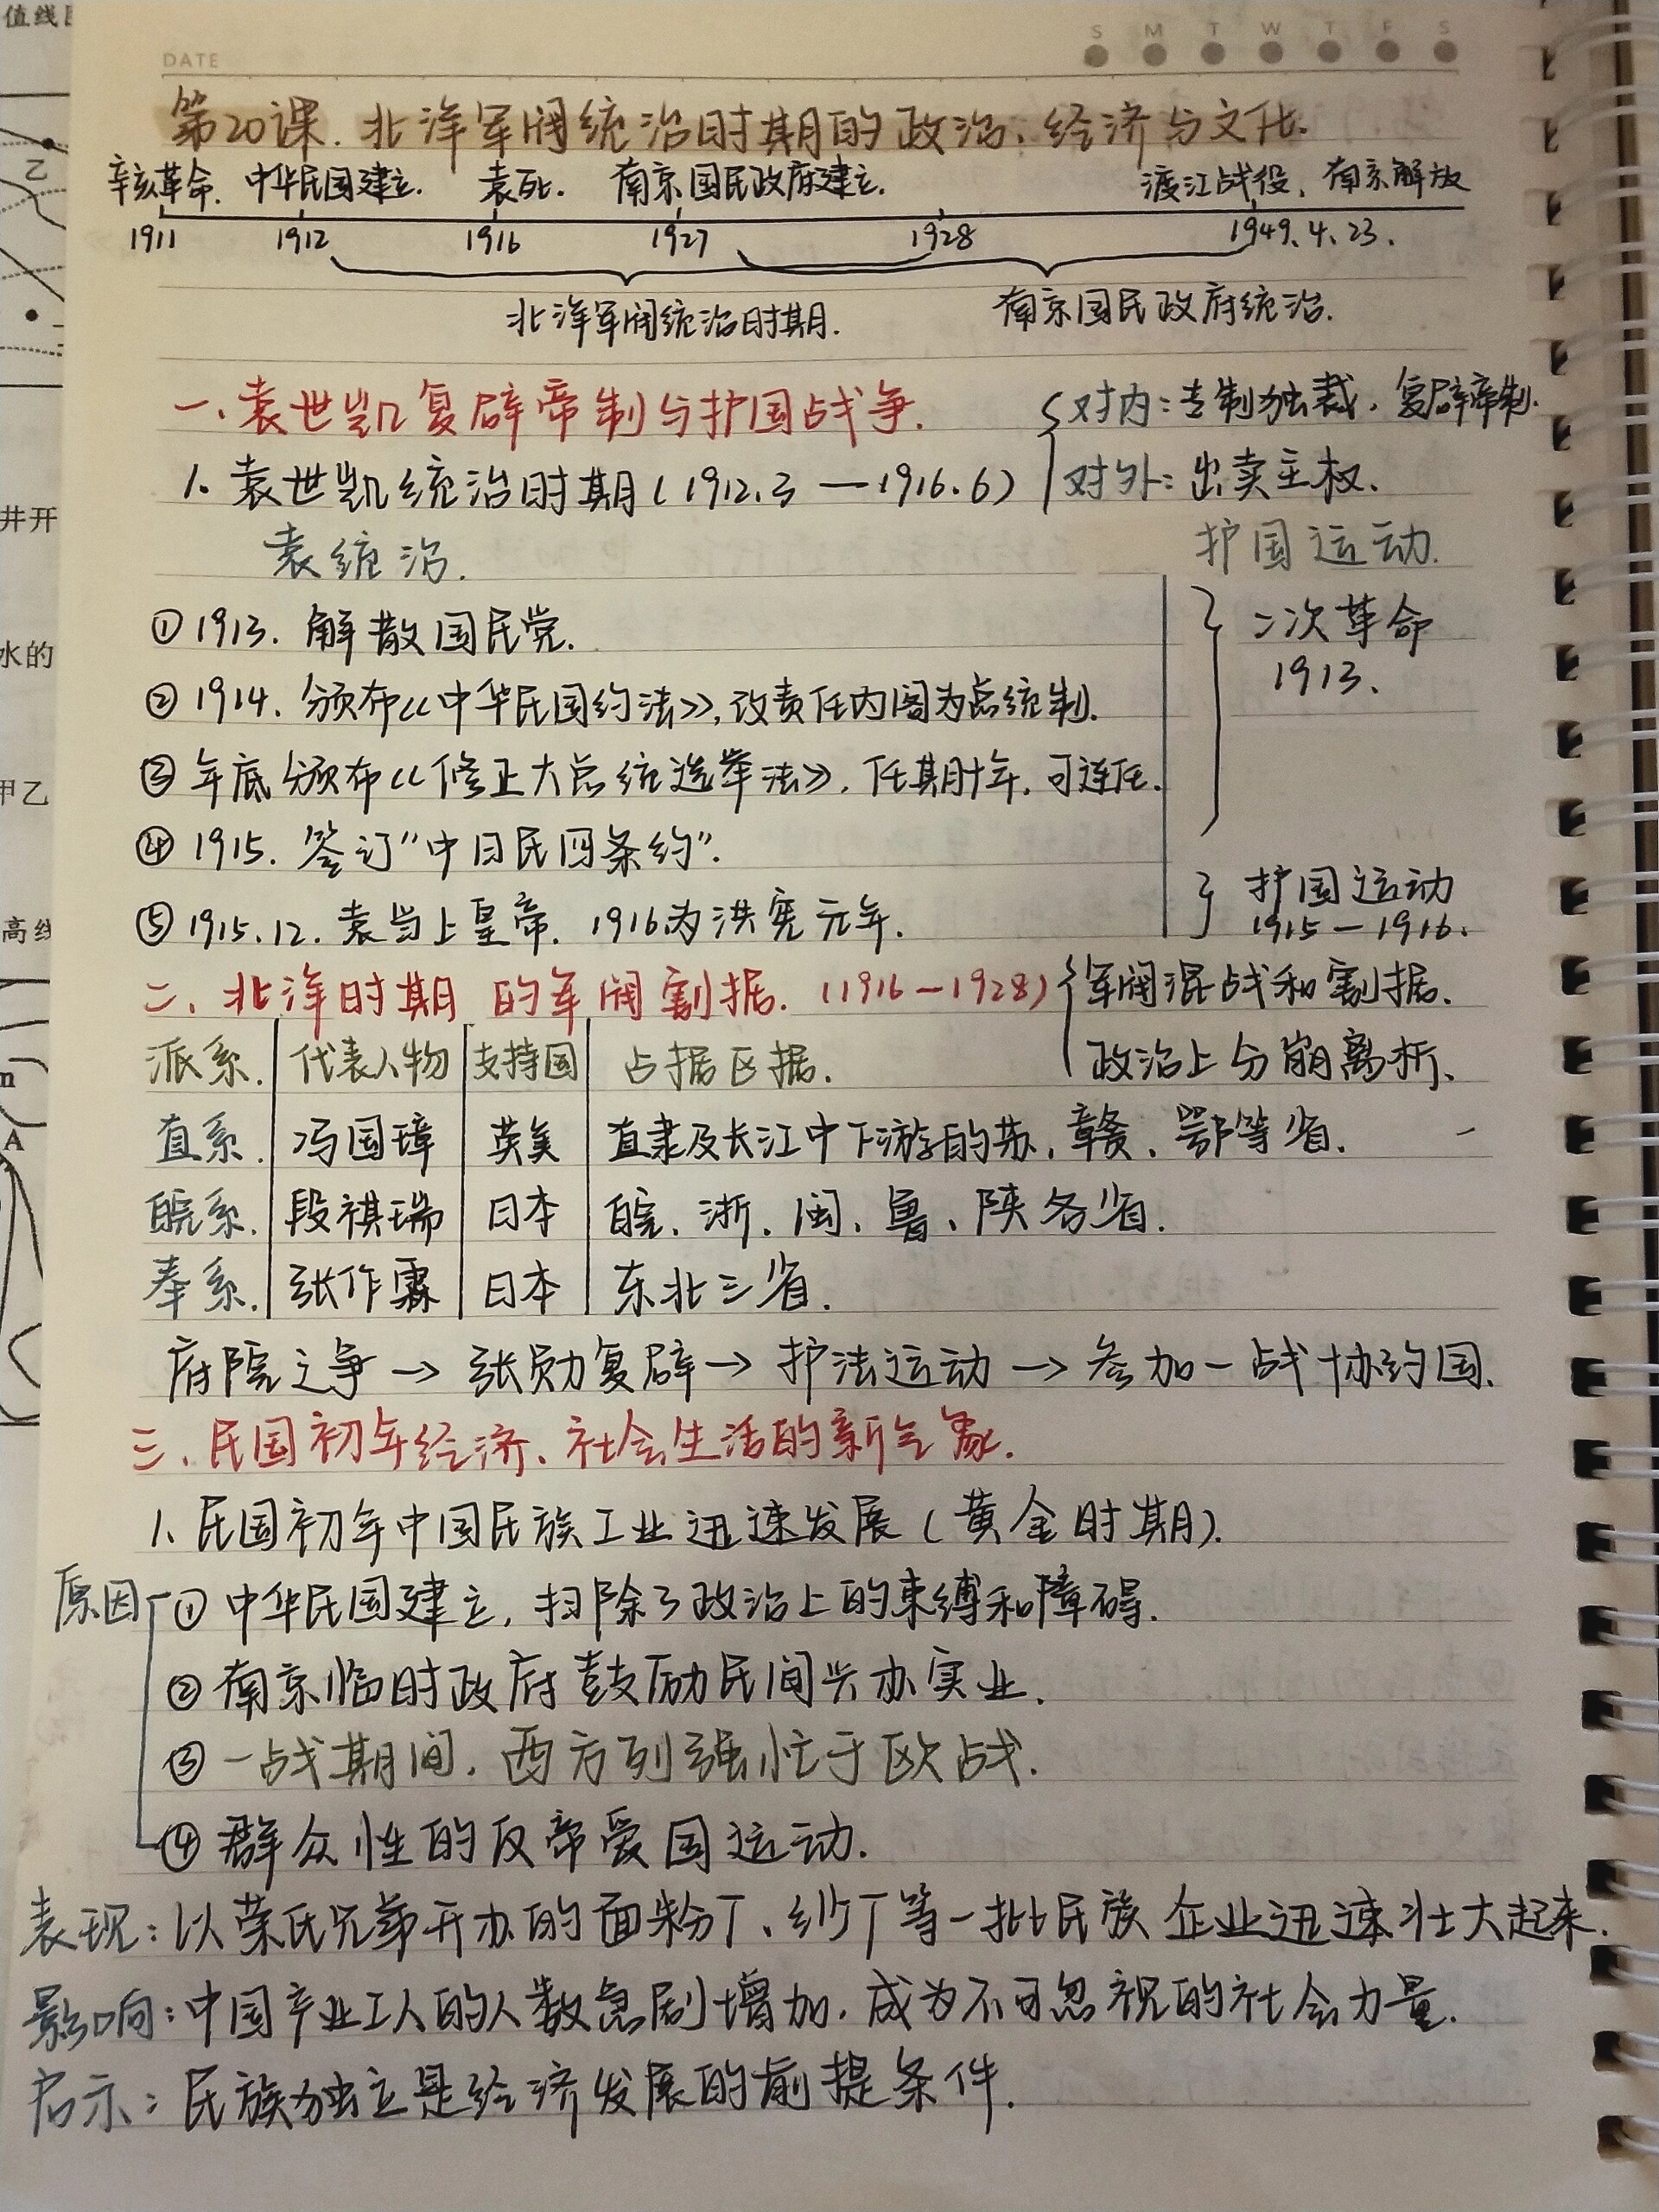 值线
DATE
S M T W T F S
第20课.北洋军阀统治时期的政治、经济与文化.
辛亥革命. 中华民国建立. 袁死. 南京国民政府建立. 渡江战役、南京解放
1911 1912 1916 1927 1928 1949.4.23.
北洋军阀统治时期. 南京国民政府统治.
一、袁世凯复辟帝制与护国战争. 对内:专制独裁、复辟帝制.
1.袁世凯统治时期(1912.3—1916.6) 对外:出卖主权.
袁统治. 护国运动.
①1913. 解散国民党. 二次革命
1913.
②1914. 颁布《中华民国约法》,改责任内阁为总统制.
③年底颁布《修正大总统选举法》,任期十年,可连任.
④1915. 签订"中日民四条约".
护国运动
⑤1915.12. 袁当上皇帝. 1916为洪宪元年. 1915—1916.
二、北洋时期的军阀割据. (1916—1928) 军阀混战和割据.
派系. 代表人物 支持国 占据区据. 政治上分崩离析.
直系. 冯国璋 英美 直隶及长江中下游的苏、赣、鄂等省.
皖系. 段祺瑞 日本 皖、浙、闽、鲁、陕各省.
奉系. 张作霖 日本 东北三省.
府院之争→张勋复辟→护法运动→参加一战协约国.
三、民国初年经济、社会生活的新气象.
1、民国初年中国民族工业迅速发展(黄金时期).
原因 ①中华民国建立,扫除了政治上的束缚和障碍.
②南京临时政府鼓励民间兴办实业.
③一战期间,西方列强忙于欧战.
④群众性的反帝爱国运动.
表现:以荣氏兄弟开办的面粉厂、纱厂等一批民族企业迅速壮大起来.
影响:中国产业工人的人数急剧增加,成为不可忽视的社会力量.
启示:民族独立是经济发展的前提条件.
乙
井开
水的
甲乙
高线
n
A